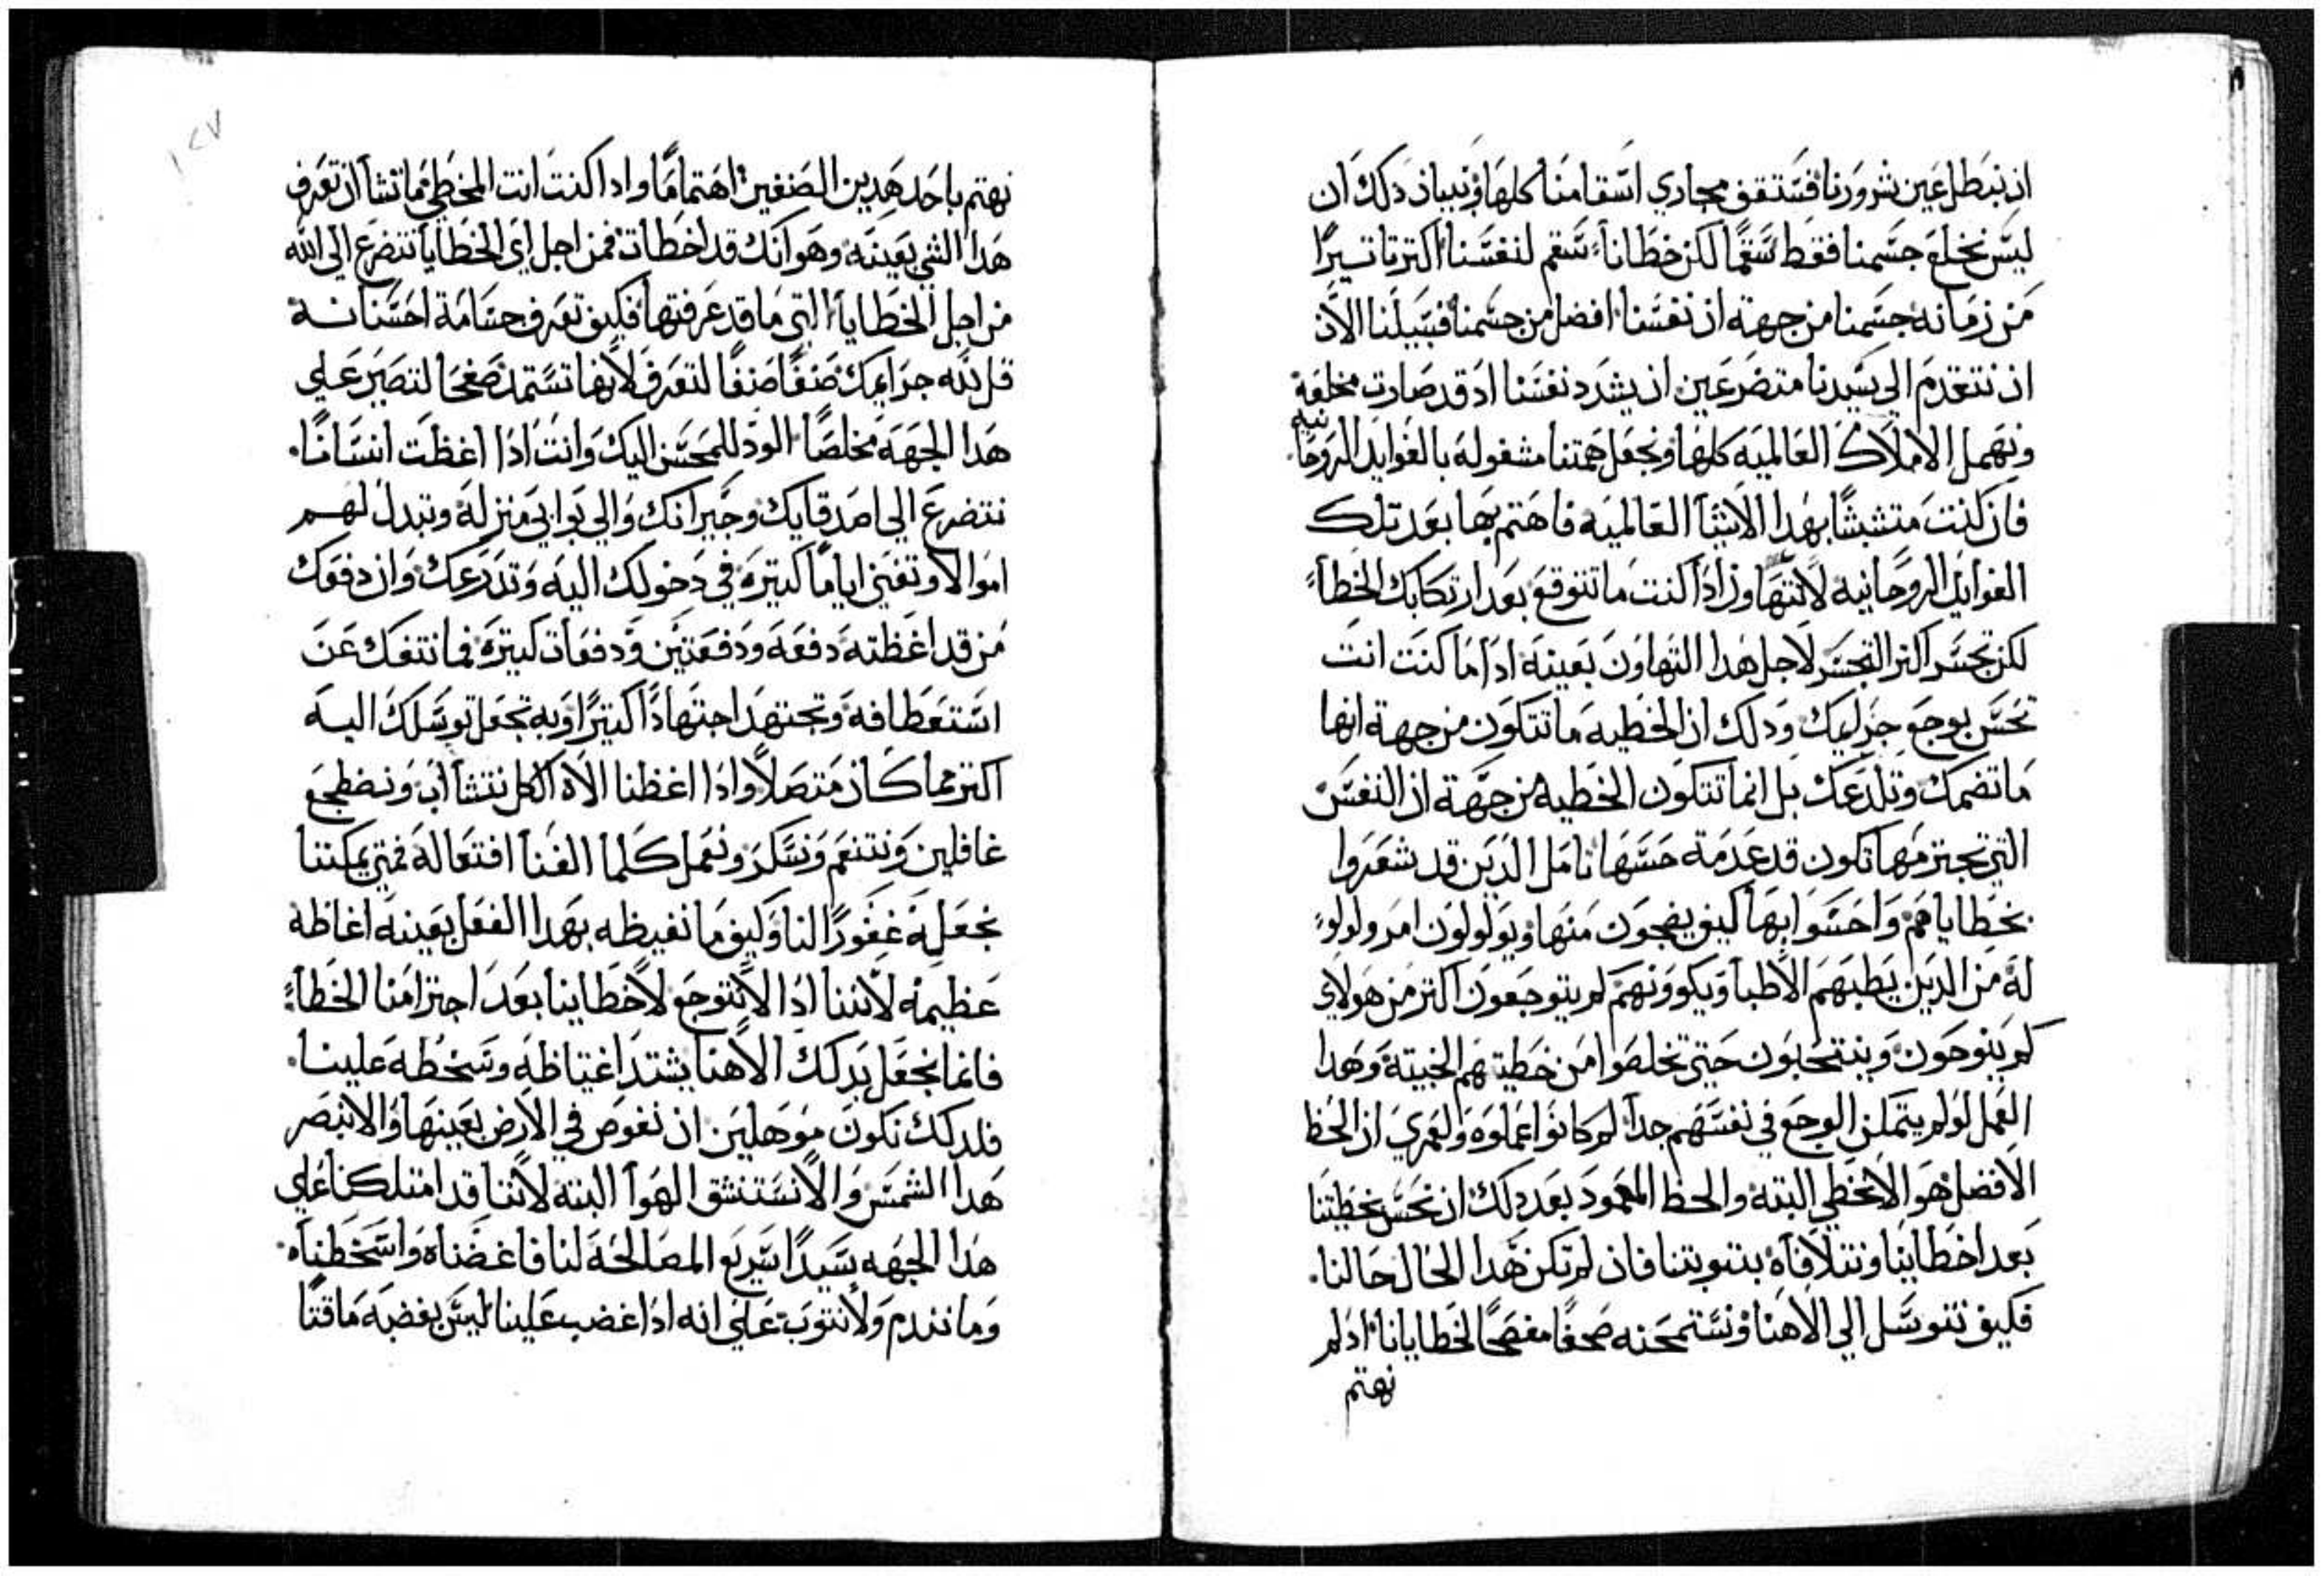 ان نبطل عين شرورنا فستقف مجاري اسقامنا كلها وبيان دلك ان
ليس نخلع جسمنا فقط سقما لكن خطانا سقم لنفسنا اكتر تاتيرا
من زمانه جسمنا من جهة ان نفسنا افضل من جسمنا فسبيلنا الان
ان نتقدم الي سيدنا متضرعين ان يشدد نفسنا اد قد صارت مخلعة
ونهمل الاملاك العالمية كلها ونجعل همتنا مشغوله بالفوايد الروحانيه
فان كنت متشبثا بهدا الاشيا العالميه فاهتم بها بعد تلك
الفوايد الروحانيه لا تتهاون ادا كنت ما تتوقع بعد ارتكابك الخطا
لكن تحسر اكتر التحسر لاجل هدا التهاون بعينه ادا ما كنت انت
تحس بوجع جرايمك ودلك ان الخطيه ما تتكون من جهة انها
ما تضمك وتلدعك بل انما تتكون الخطيه من جهة ان النفس
التي تجترمها تكون قد عدمة حسها تامل الدين قد شعروا
بخطاياهم واحسوا بها كيف يضجون منها ويولولون امر ولولو
له من الدين يطبهم الاطبا ويكوونهم لم يتوجعون اكتر من هولاي
كم ينوحون وينتحبون حتي تخلصوا من خطيتهم الخبيتة وهدا
العمل لو لم يتمكن الوجع في نفسهم جدا لم كانوا عملوه ولعمري ان الحظ
الافضل هو الا نخطي البتة والحظ المحمود بعد دلك ان نحس بخطيتنا
بعد اخطاينا ونتلافاه بتوبتنا فان لم تكن هدا الحال حالنا
فكيف نتوسل الي الاهنا ونستمحنه صفحا لخطايانا اد لم
نهتم
١٢٧
نهتم باحد هدين الصنفين اهتماما وادا كنت انت المخطي ما تشا ان تعرف
هدا الشي بعينه وهو انك قد اخطات فمن اجل اي الخطايا تتضرع الي الله
من اجل الخطايا التي ما قد عرفتها فكيف تعرف جسامة احسانه
قل لله جرايمك صنفا صنفا لتعرف لايها تستمد صفحا لتصير علي
هدا الجهة مخلصا الود للمحسن اليك وانت ادا اغظت انسانا
تتضرع الي اصدقايك وجيرانك والي بوابي منزله وتبدل لهم
اموالا وتفني اياما كتيرة في دخولك اليه وتضرعك وان دفعك
من قد اغظته دفعه ودفعتين ودفعات كتيرة فما تنفك عن
استعطافه وتجتهد اجتهادا كتيرا وبه تجعل توسلك اليه
اكتر مما كان متصلا وادا اغظنا الاه الكل نتثاءب ونضطجع
غافلين ونتنعم ونسكر ونعمل كلما الفنا افتعاله فمتي يمكننا
نجعله غفورا لنا وكيف ما نغيظه بهدا الفعل بعينه اغاظه
عظيمه لاننا ادا لا نتوجع لاخطاينا بعد اجترامنا الخطا
فانما نجعل بدلك الاهنا يشتد اغتياظه وسخطه علينا
فلدلك نكون موهلين ان نغوص في الارض بعينها والا نبصر
هدا الشمس والا نستنشق الهوا البته لاننا قد امتلكنا علي
هدا الجهه سيدا سريع المصالحة لنا فاغضناه واسخطناه
وما نندم ولا نتوب علي انه ادا غضب علينا ليس بغضبه ماقتا